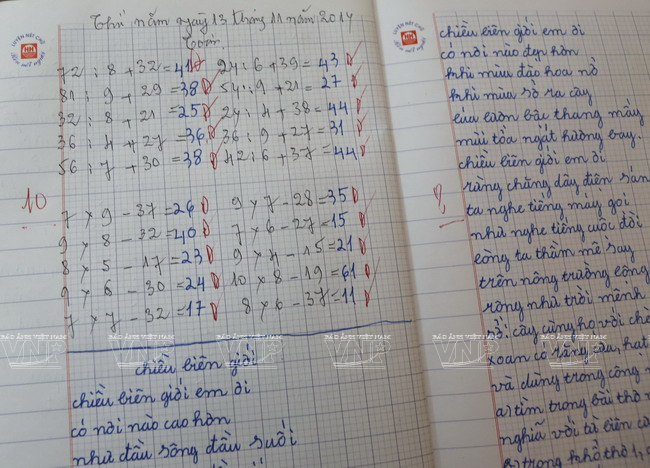 Thứ năm ngày 13 tháng 11 năm 2014
Toán
72 : 8 + 32 = 41 24 : 6 + 39 = 43
81 : 9 + 29 = 38 54 : 9 + 21 = 27
32 : 8 + 21 = 25 24 : 4 + 38 = 44
36 : 4 + 27 = 36 36 : 9 + 27 = 31
56 : 7 + 30 = 38 42 : 6 + 37 = 44
10
7 × 9 - 37 = 26 9 × 7 - 28 = 35
9 × 8 - 32 = 40 7 × 6 - 27 = 15
8 × 5 - 17 = 23 9 × 4 - 15 = 21
9 × 6 - 30 = 24 10 × 8 - 19 = 61
7 × 7 - 32 = 17 8 × 6 - 37 = 11
chiều biên giới
chiều biên giới em ơi
có nơi nào cao hơn
như đầu sông đầu suối
chiều biên giới em ơi
có nơi nào đẹp hơn
khi mùa đào hoa nở
khi mùa sở ra cây
lúa lườn bậc thang mây
mùi tỏa ngát hương bay.
chiều biên giới em ơi
rằng chăng dây điện sán
ta nghe tiếng máy gọi
như nghe tiếng cuộc đời
lòng ta thầm mê say
trên nông trường lộng
rộng như trời mênh
cây cùng họ với
xoan có răng
và dùng trong công
a) tìm trong bài thơ
nghĩa với từ biên
trong khổ thơ 1,
BÁO ẢNH VIỆT NAM
VNP
BÁO ẢNH VIỆT NAM
VNP